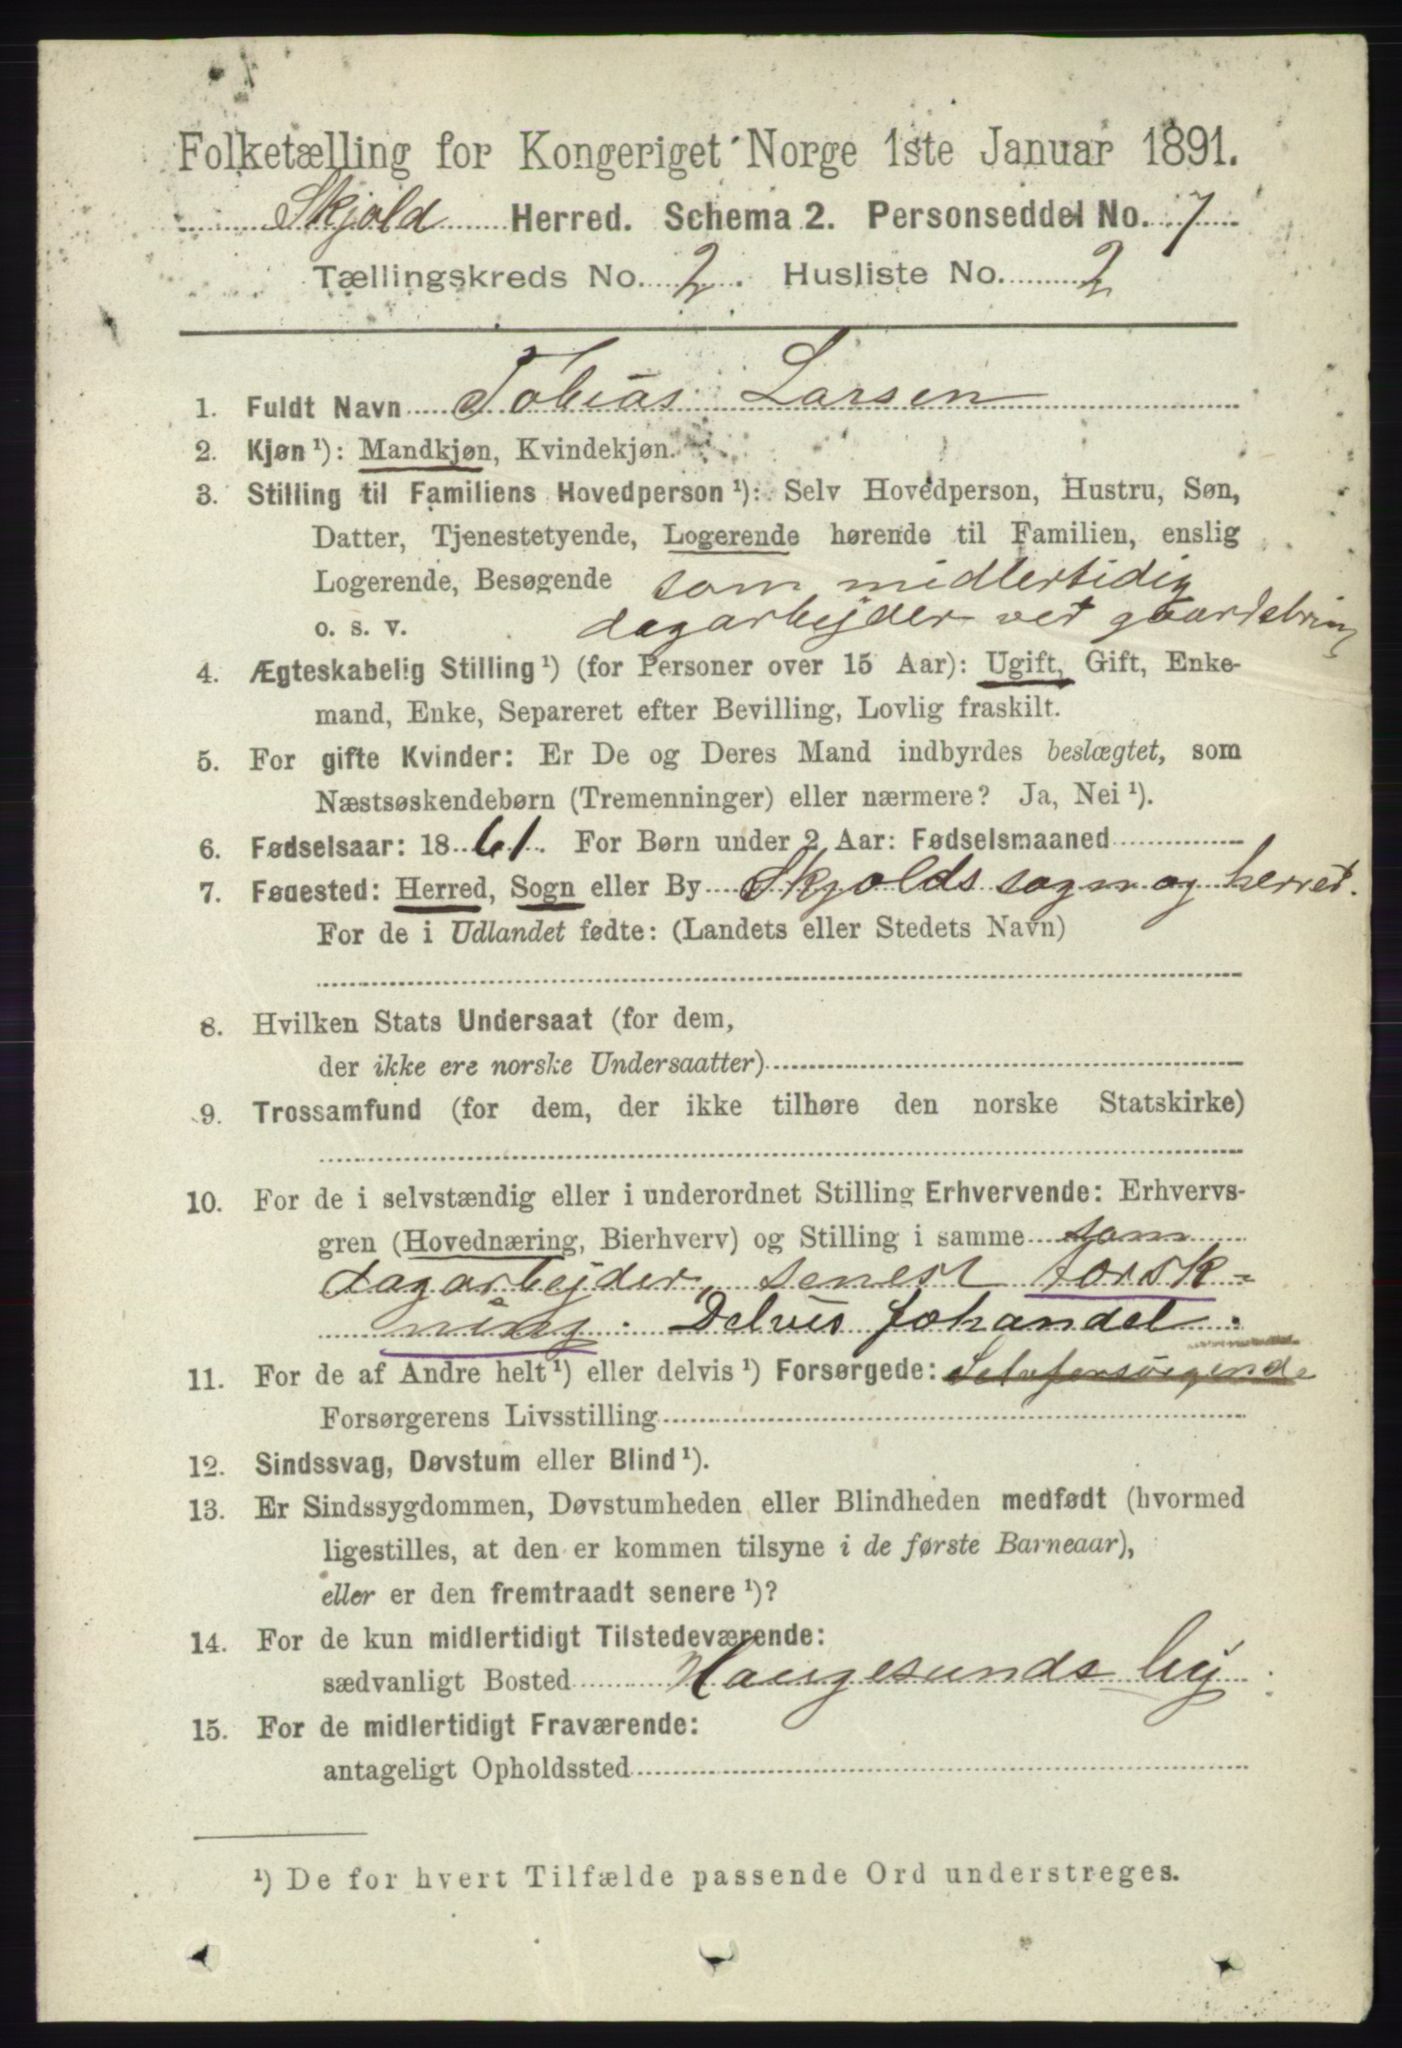 Folketælling for Kongeriget Norge 1ste Januar 1891.
Skjold Herred. Schema 2. Personseddel No. 7
Tællingskreds No. 2. Husliste No. 2
1. Fuldt Navn Tobias Larsen
2. Kjøn¹): Mandkjøn, Kvindekjøn.
3. Stilling til Familiens Hovedperson¹): Selv Hovedperson, Hustru, Søn,
Datter, Tjenestetyende, Logerende hørende til Familien, enslig
Logerende, Besøgende som midlertidig
o. s. v. dagarbejder ved gaardsbrug
4. Ægteskabelig Stilling¹) (for Personer over 15 Aar): Ugift, Gift, Enke-
mand, Enke, Separeret efter Bevilling, Lovlig fraskilt.
5. For gifte Kvinder: Er De og Deres Mand indbyrdes beslægtet, som
Næstsøskendebørn (Tremenninger) eller nærmere? Ja, Nei¹).
6. Fødselsaar: 1861. For Børn under 2 Aar: Fødselsmaaned
7. Fødested: Herred, Sogn eller By Skjolds sogn og herred.
For de i Udlandet fødte: (Landets eller Stedets Navn)
8. Hvilken Stats Undersaat (for dem,
der ikke ere norske Undersaatter)
9. Trossamfund (for dem, der ikke tilhøre den norske Statskirke)
10. For de i selvstændig eller i underordnet Stilling Erhvervende: Erhvervs-
gren (Hovednæring, Bierhverv) og Stilling i samme som
dagarbejder, senest torsk-
ning. Delvis johandel.
11. For de af Andre helt¹) eller delvis¹) Forsørgede: Selvforsørgende
Forsørgerens Livsstilling
12. Sindssvag, Døvstum eller Blind¹).
13. Er Sindssygdommen, Døvstumheden eller Blindheden medfødt (hvormed
ligestilles, at den er kommen tilsyne i de første Barneaar),
eller er den fremtraadt senere¹)?
14. For de kun midlertidigt Tilstedeværende:
sædvanligt Bosted Haugesunds by
15. For de midlertidigt Fraværende:
antageligt Opholdssted
¹) De for hvert Tilfælde passende Ord understreges.